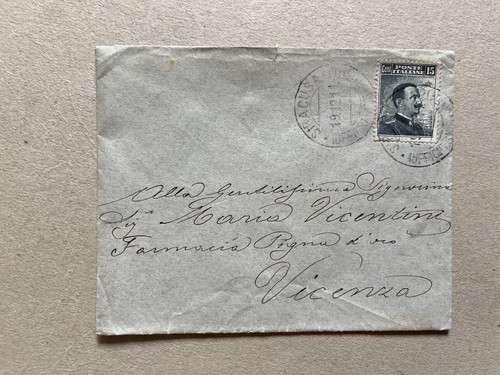 SIRACUSA
19.12.11
Cent. POSTE ITALIANE 15
Alla Gentilissima Signorina
Sig.ª Maria Vicentini
Farmacia Pigna d'oro
Vicenza